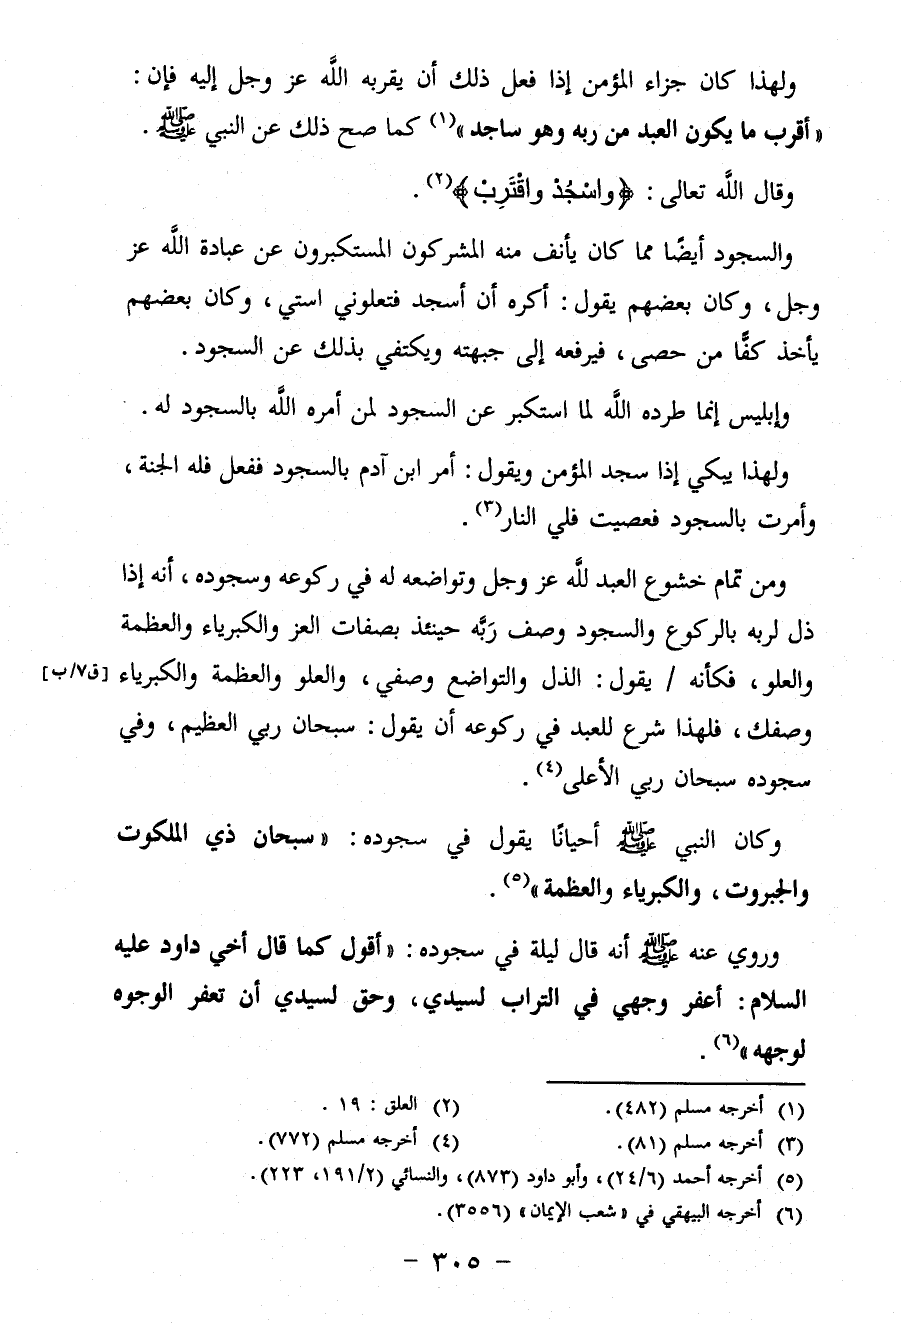 ولهذا كان جزاء المؤمن إذا فعل ذلك أن يقربه اللَّه عز وجل إليه فإن :
«أقرب ما يكون العبد من ربه وهو ساجد»(١) كما صح ذلك عن النبي ﷺ .
وقال اللَّه تعالى : ﴿واسْجُدْ واقْتَرِبْ﴾(٢) .
والسجود أيضًا مما كان يأنف منه المشركون المستكبرون عن عبادة اللَّه عز
وجل ، وكان بعضهم يقول : أكره أن أسجد فتعلوني استي ، وكان بعضهم
يأخذ كفًّا من حصى ، فيرفعه إلى جبهته ويكتفي بذلك عن السجود .
وإبليس إنما طرده اللَّه لما استكبر عن السجود لمن أمره اللَّه بالسجود له .
ولهذا يبكي إذا سجد المؤمن ويقول : أمر ابن آدم بالسجود ففعل فله الجنة ،
وأمرت بالسجود فعصيت فلي النار(٣) .
ومن تمام خشوع العبد للَّه عز وجل وتواضعه له في ركوعه وسجوده ، أنه إذا
ذل لربه بالركوع والسجود وصف رَبَّه حينئذ بصفات العز والكبرياء والعظمة
والعلو ، فكأنه / يقول : الذل والتواضع وصفي ، والعلو والعظمة والكبرياء [ق٧/ب]
وصفك ، فلهذا شرع للعبد في ركوعه أن يقول : سبحان ربي العظيم ، وفي
سجوده سبحان ربي الأعلى(٤) .
وكان النبي ﷺ أحيانًا يقول في سجوده : «سبحان ذي الملكوت
والجبروت ، والكبرياء والعظمة»(٥) .
وروي عنه ﷺ أنه قال ليلة في سجوده : «أقول كما قال أخي داود عليه
السلام : أعفر وجهي في التراب لسيدي ، وحق لسيدي أن تعفر الوجوه
لوجهه»(٦) .
(١) أخرجه مسلم (٤٨٢). (٢) العلق : ١٩ .
(٣) أخرجه مسلم (٨١). (٤) أخرجه مسلم (٧٧٢).
(٥) أخرجه أحمد (٢٤/٦)، وأبو داود (٨٧٣)، والنسائي (١٩١/٢، ٢٢٣).
(٦) أخرجه البيهقي في «شعب الإيمان» (٣٥٥٦).
- ٣٠٥ -